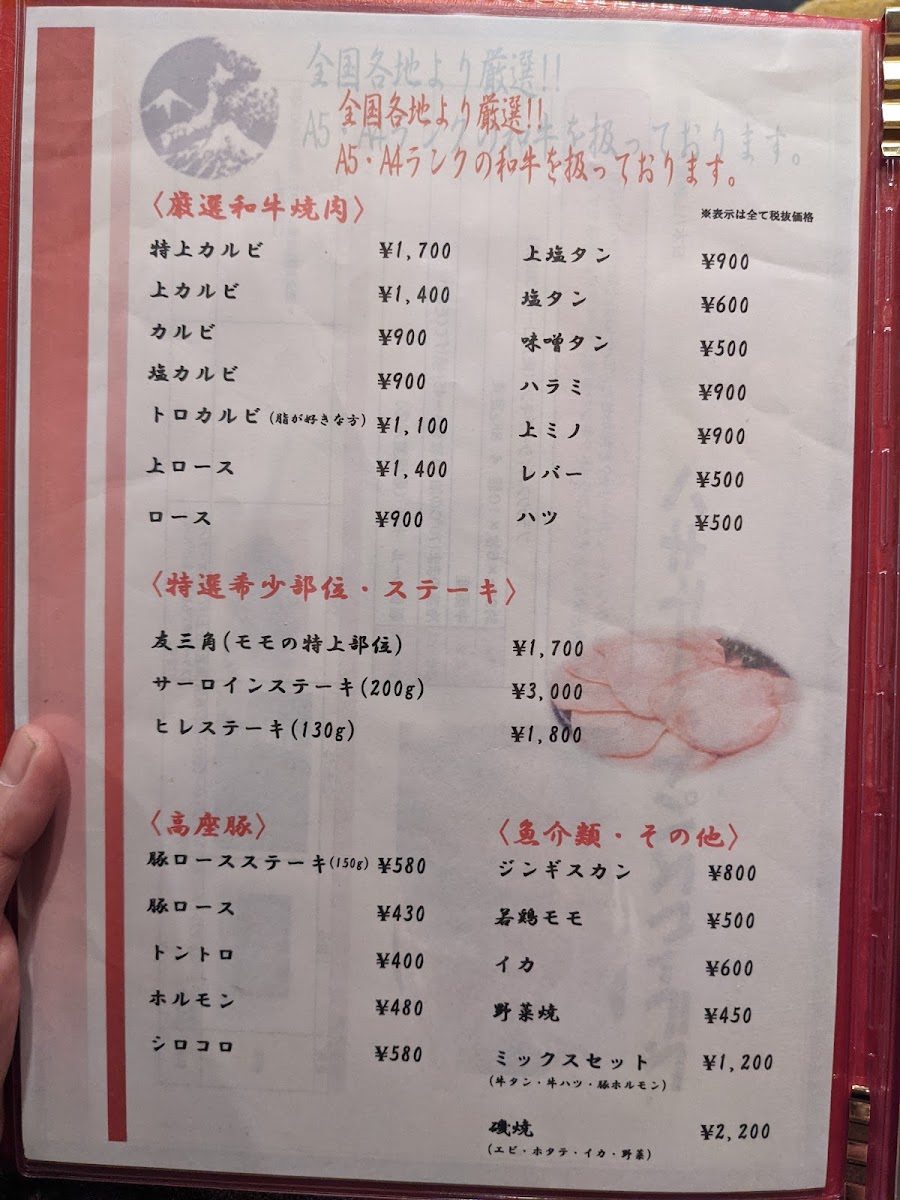 全国各地より厳選!!
A5・A4ランクの和牛を扱っております。
〈厳選和牛焼肉〉
※表示は全て税抜価格
特上カルビ ¥1,700
上カルビ ¥1,400
カルビ ¥900
塩カルビ ¥900
トロカルビ(脂が好きな方) ¥1,100
上ロース ¥1,400
ロース ¥900
上塩タン ¥900
塩タン ¥600
味噌タン ¥500
ハラミ ¥900
上ミノ ¥900
レバー ¥500
ハツ ¥500
〈特選希少部位・ステーキ〉
友三角(モモの特上部位) ¥1,700
サーロインステーキ(200g) ¥3,000
ヒレステーキ(130g) ¥1,800
〈高座豚〉
豚ロースステーキ(150g) ¥580
豚ロース ¥430
トントロ ¥400
ホルモン ¥480
シロコロ ¥580
〈魚介類・その他〉
ジンギスカン ¥800
若鶏モモ ¥500
イカ ¥600
野菜焼 ¥450
ミックスセット ¥1,200
(牛タン・牛ハツ・豚ホルモン)
磯焼 ¥2,200
(エビ・ホタテ・イカ・野菜)